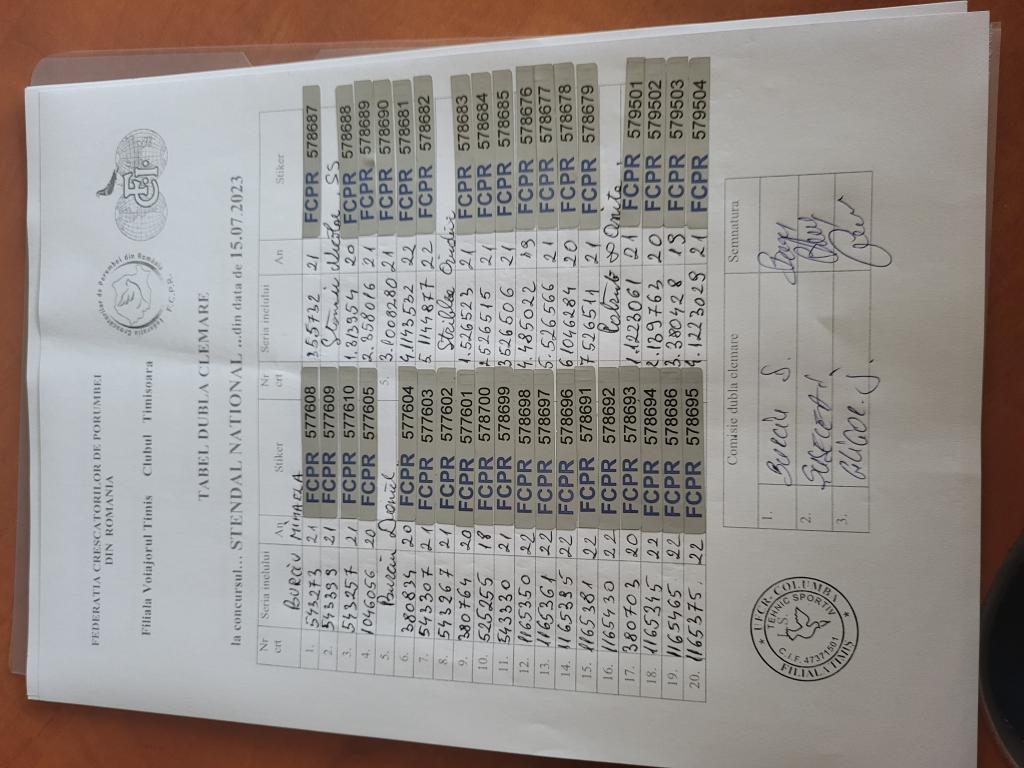 FEDERATIA CRESCATORILOR DE PORUMBEI
DIN ROMANIA
Filiala Voiajorul Timis Clubul Timisoara
Federatia Crescatorilor de Porumbei din România
F.C.P.R.
FCI
TABEL DUBLA CLEMARE
la concursul... STENDAL NATIONAL ...din data de 15.07.2023
Nr crt Seria inelului An Stiker Nr crt Seria inelului An Stiker
BURCIU MIHAELA
1. 543273 21 FCPR 577608 355732 21 FCPR 578687
2. 543399 21 FCPR 577609 Stanciu Nicolae SS
3. 543257 21 FCPR 577610 1.313954 20 FCPR 578688
4. 1046056 20 FCPR 577605 2.358016 21 FCPR 578689
5. Burciu Daniel 5. 3.1008080 21 FCPR 578690
6. 380834 20 FCPR 577604 4.1143532 22 FCPR 578681
7. 543307 21 FCPR 577603 5.1144877 22 FCPR 578682
8. 543267 21 FCPR 577602 Ovidiu
9. 380764 20 FCPR 577601 1.526523 21 FCPR 578683
10. 525255 18 FCPR 578700 2526515 21 FCPR 578684
11. 543330 21 FCPR 578699 3526506 21 FCPR 578685
12. 1165350 22 FCPR 578698 4.485022 19 FCPR 578676
13. 1165361 22 FCPR 578697 5.526566 21 FCPR 578677
14. 1165395 22 FCPR 578696 61046284 20 FCPR 578678
15. 1165381 22 FCPR 578691 7526511 21 FCPR 578679
16. 1165430 22 FCPR 578692
17. 380703 20 FCPR 578693 1.1223061 21 FCPR 579501
18. 1165345 22 FCPR 578694 2.139763 20 FCPR 579502
19. 1165465 22 FCPR 578686 3.380428 19 FCPR 579503
20. 1165375. 22 FCPR 578695 4.1223029 21 FCPR 579504
Comisie dubla clemare Semnatura
1. BURCIU D.
2.
3. GLIGOR. J.
UFCR-COLUMBA
TEHNIC SPORTIV
C.I.F. 47371501
FILIALA TIMIS